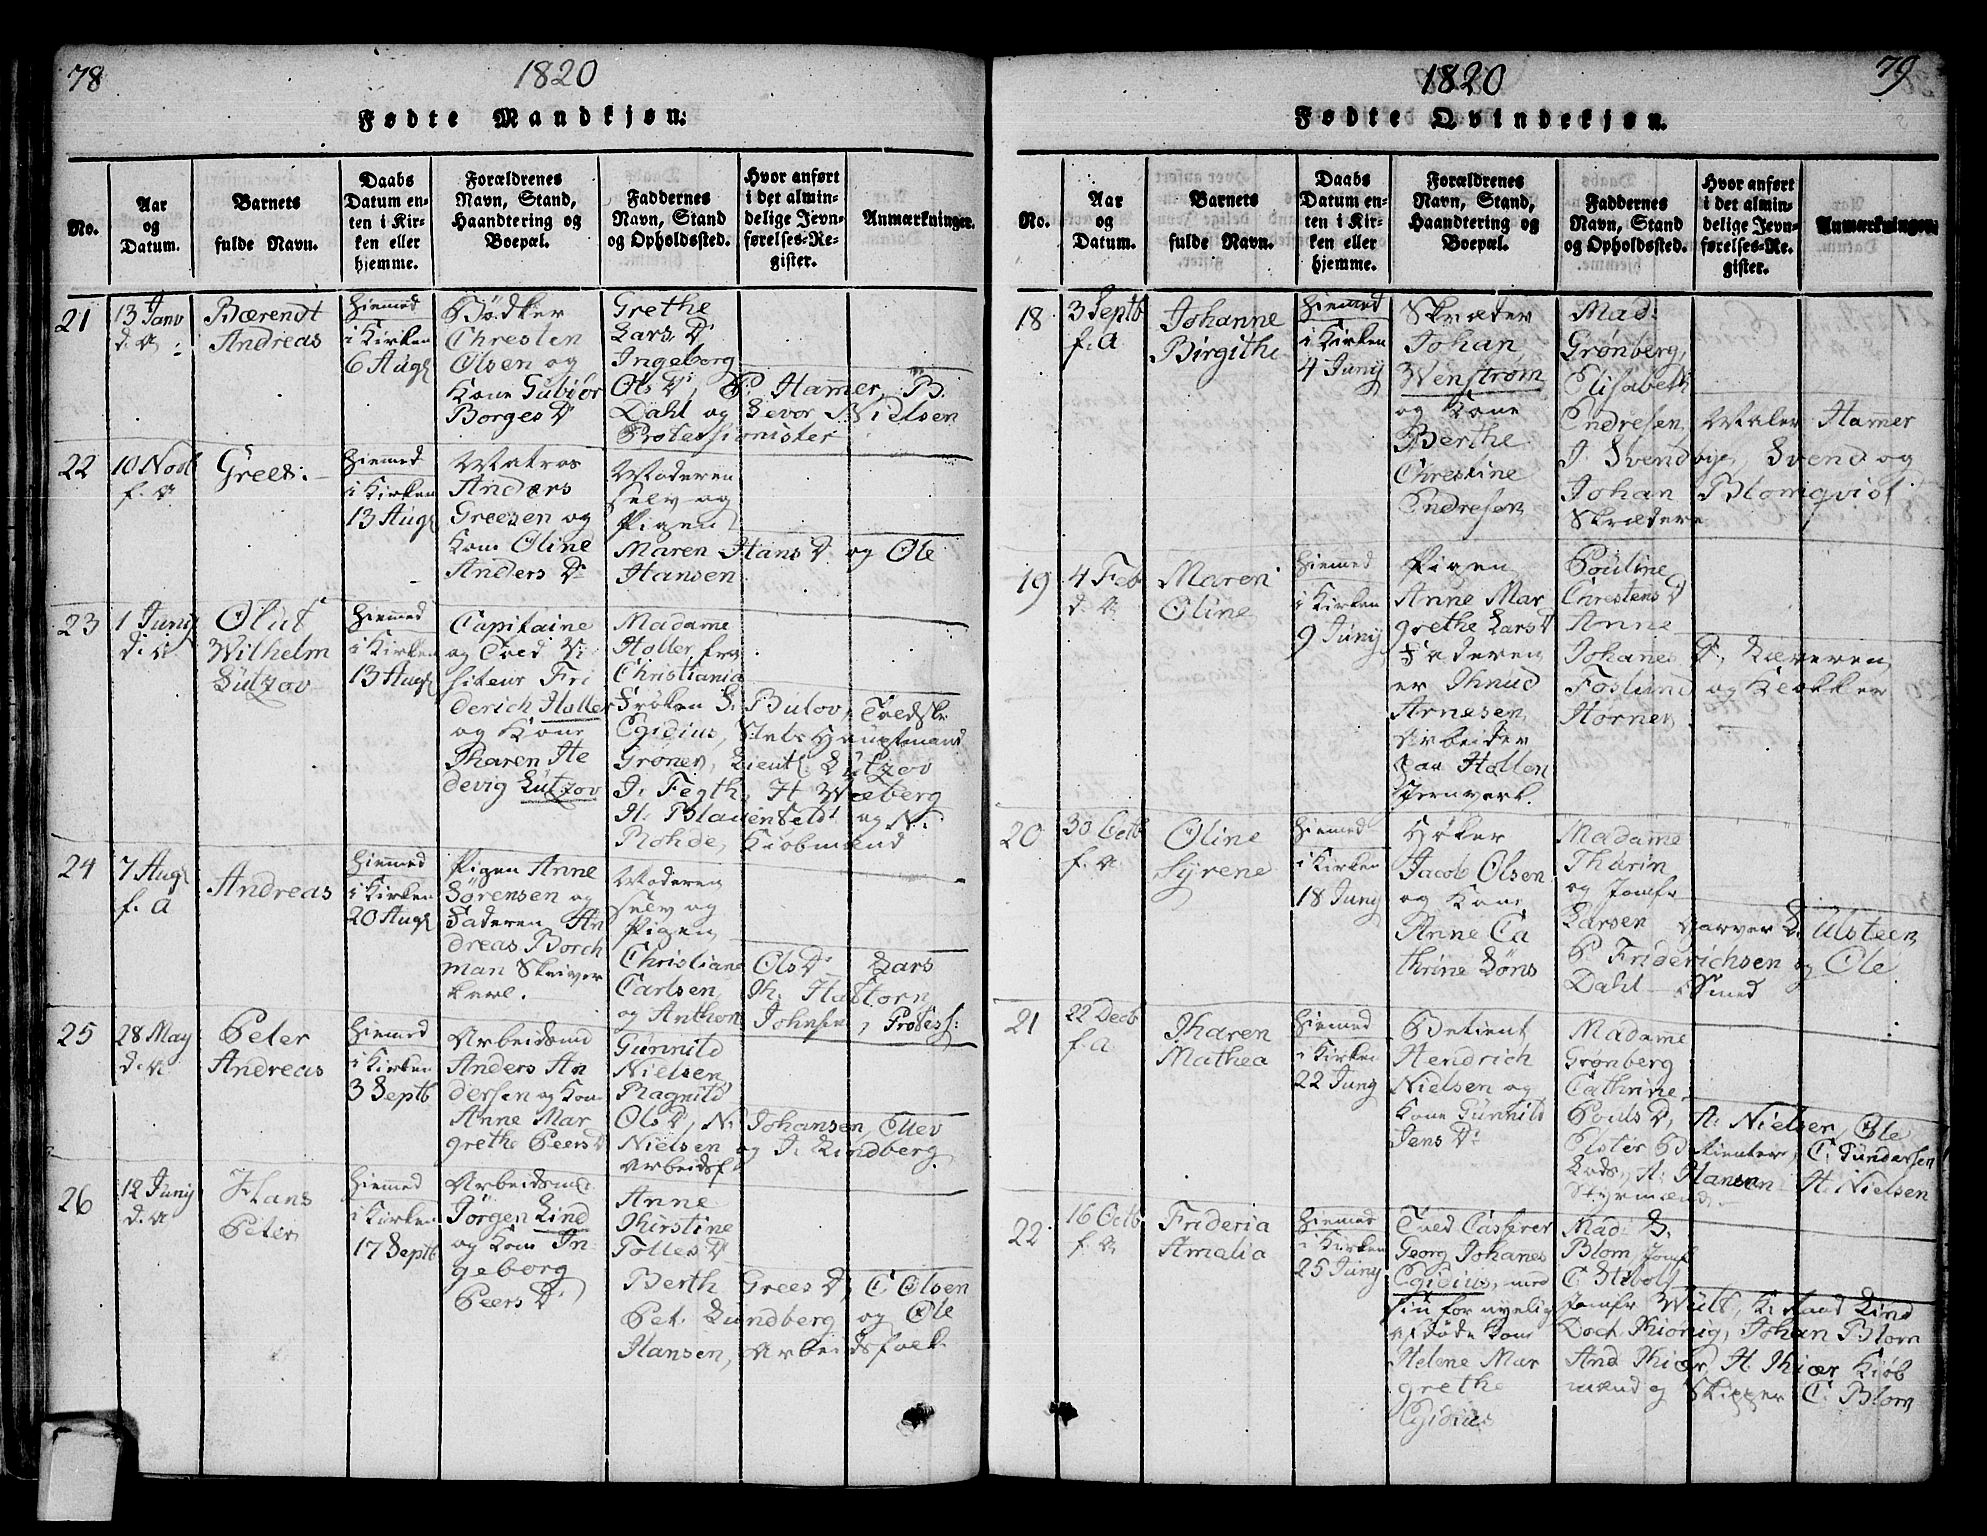 78
1820
Fødte Mandkjøn.
No.
Aar
og
Datum.
Barnets
fulde Navn.
Daabs
Datum en-
ten i Kir-
ken eller
hjemme.
Forældrenes
Navn, Stand,
Haandtering og
Boepæl.
Faddernes
Navn, Stand
og Opholdssted.
Hvor anført
i det almin-
delige Jevn-
førelses-Re-
gister.
Anmærkninger.
21
13 Janv
d. A:
Bærendt
Andreas
Hiemed
i Kirken
6 Augl
Bødker
Chresten
Olsen og
Kone Gubiør
Borges D
Grethe
Lars D
Ingeborg
Ols D, C. Hamer, B.
Dahl og Sevor Nielsen
Professionister
22
10 Novb
f. A
Grees:
Hiemed
i Kirken
13 Augl
Matros
Anders
Greesen og
Kone Oline
Anders D
Moderen
selv og
Pigen
Maren Hans D og Ole
Hansen
23
1 Juny
d. A
Oluf
Wilhelm
Lützov
Hiemed
i Kirken
13 Augl
Capitaine
og Told Vi
siteur Fri
derich Holler
og Kone
Karen He
devig Lützov
Madame
Holler fra
Christiania
Frøken S. Bülov, Toldskr
Egidius, Stabs Hauptmand
Grøner, Lieutl. Lützov
J. Fegth, H Weberg
H. Blauenfeldt og N.
Rohde, Kiøbmænd
24
7 Augl
f. A
Andreas
Hiemed
i Kirken
20 Augl
Pigen Anne
Sørensen og
Faderen An
dreas Borch
man Skriver
karl.
Moderen
selv og
Pigen
Christiane Ols D Lars
Carlsen, K. Hastorn
og Anthon Johnsen, Profess:
25
28 May
d. A
Peter
Andreas
Hiemed
i Kirken
3 Septb
Arbeidsmd
Anders An
dersen og Kone
Anne Mar
grethe Peers D
Gunnild
Nielsen
Ragnild
Ols D, N. Johansen, Ellev
Nielsen og J. Lindberg
Arbeidsf.
26
12 Juny
d. A
Hans
Peter
Hiemed
i Kirken
17 Septb
Arbeidsmd
Jørgen Lind
og Kone In-
geborg
Peers D
Anne
Kirstine
Tolles D
Berth Grees D, C Olsen
Pet. Lundberg og Ole
Hansen, Arbeidsfolk
79
1820
Fødte Qvindekjøn.
No.
Aar
og
Datum.
Barnets
fulde Navn.
Daabs
Datum en-
ten i Kir-
ken eller
hjemme.
Forældrenes
Navn, Stand,
Haandtering og
Boepæl.
Faddernes
Navn, Stand
og Opholdssted.
Hvor anført
i det almin-
delige Jevn-
førelses-Re-
gister.
Anmærkninger.
18
3 Septb
f. A
Johanne
Birgithe
Hiemed
i Kirken
4 Juny
Skræder
Johan
Wenstrøm
og Kone
Berthe
Chrestine
Endresen
Mad:
Grønberg,
Elisabeth
Endresen, Maler Hamer
J. Svendbye, Svend og
Johan Blomqvist
Skrædere
19
4 Feb
d. A
Maren
Oline
Hiemed
i Kirken
9 Juny
Pigen
Anne Mar
grethe Lars D
Faderen
er Knud
Arnesen
Arbeider
paa Hollen
Jernverk.
Pouline
Chrestens D
Anne
Johanes D, Læreren
Foslund og Klokker
Hørner
20
30 Octb
f. A
Oline
Syrene
Hiemed
i Kirken
18 Juny
Høker
Jacob Olsen
og Kone
Anne Ca
thrine Løns
Madame
Thurim
og Jomfr
Larsen Garver L. Ulsteen
P. Friderichsen og Ole
Dahl Smed
21
22 Decb
f. a
Karen
Mathea
Hiemed
i Kirken
22 Juny
Betient
Hendrich
Nielsen og
Kone Gunnild
Jens D.
Madame
Grønberg
Cathrine
Pouls D, A. Nielsen, Ole
Ester Betientere, C. Gundersen
Lods, A. Hansen H. Nielsen
Styrmænd
22
16 Octb
f. A
Frideria
Amalia
Hiemed
i Kirken
25 Juny
Told Casserer
Georg Johanes
Egidius, med
sin for nyelig
afdøde Kone
Helene Mar
grethe
Egidius
Mad: S.
Blom, Jomf
C. Stibolt
Jomfr Wulf, K. Aaad Lind
Doct. Kionig, Johan Blom
And Kiær, H. Kiær Kiøb
mænd og Skipper C. Blom